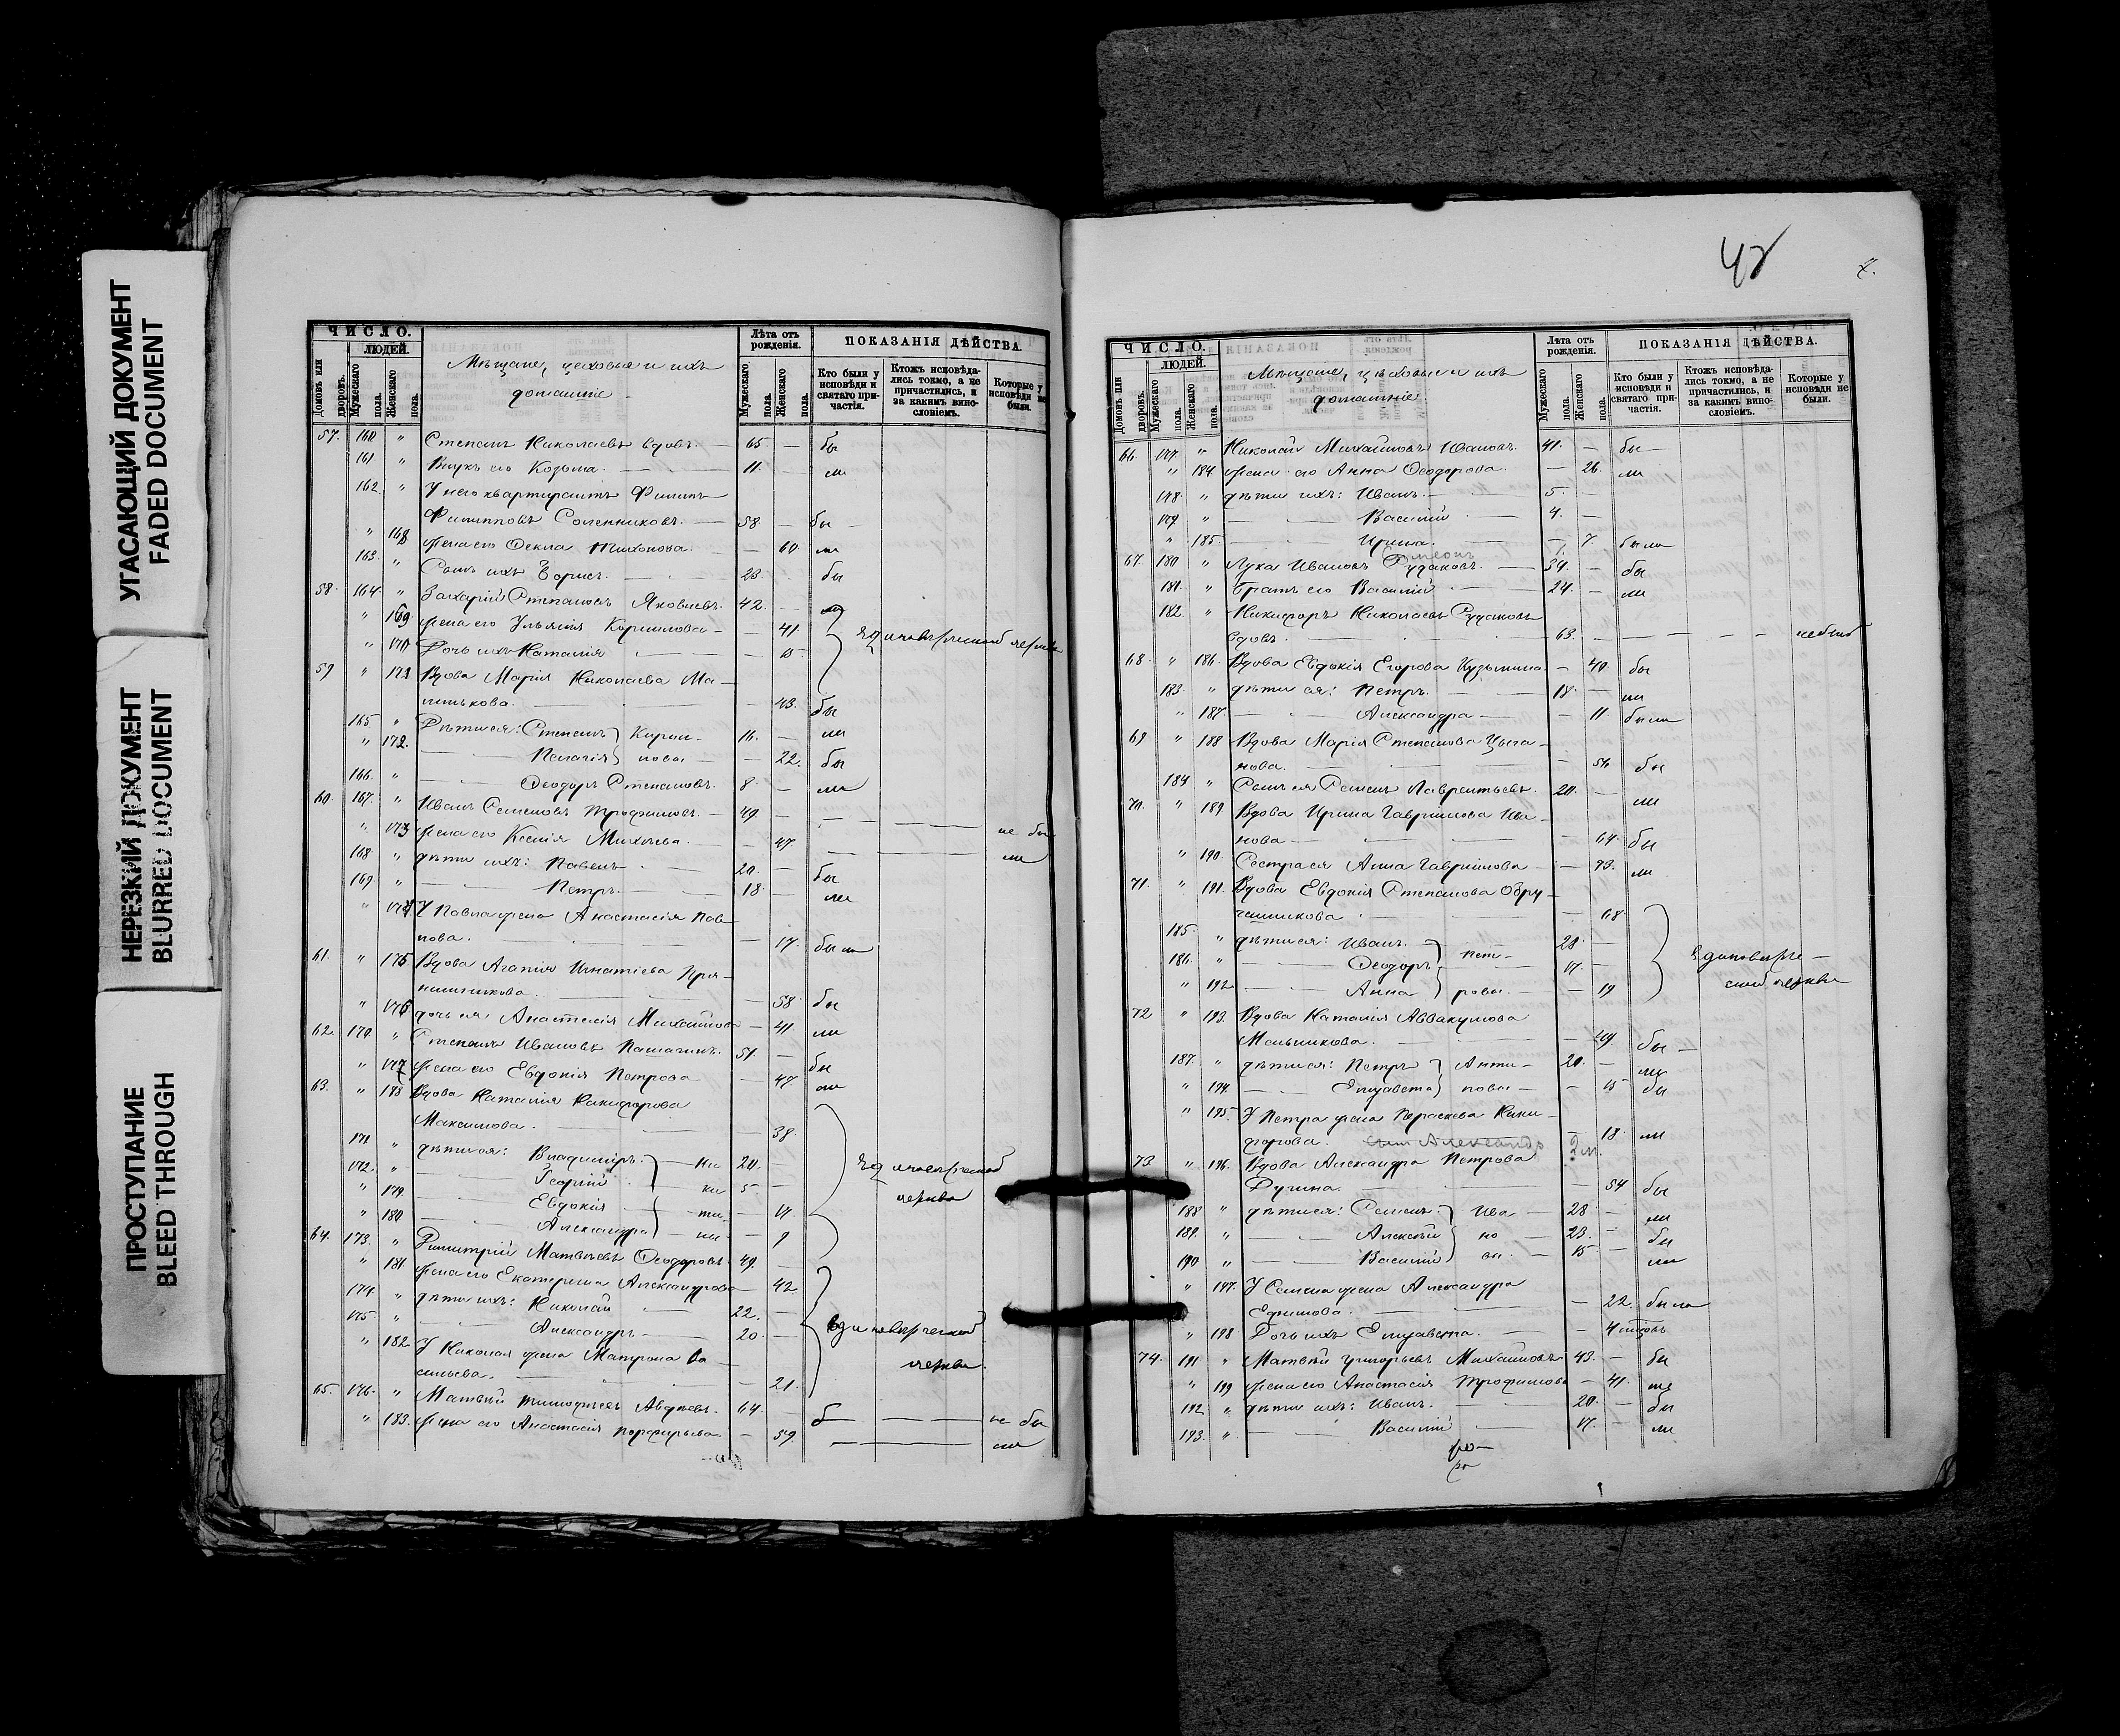 УГАСАЮЩИЙ ДОКУМЕНТ
FADED DOCUMENT
НЕРЕЗКИЙ ДОКУМЕНТ
BLURRED DOCUMENT
ПРОСТУПАНИЕ
BLEED THROUGH
ЧИСЛО.
ЛЮДЕЙ.
Домовъ или дворовъ.
Мужескаго пола.
Женскаго пола.
Мѣщане, цеховые и ихъ
домашніе
Лѣта отъ рожденія.
Мужескаго пола.
Женскаго пола.
ПОКАЗАНІЯ ДѢЙСТВА.
Кто были у исповѣди и святаго причастія.
Ктожъ исповѣдались токмо, а не причастились, и за какимъ винословіемъ.
Которые у исповѣди не были.
57. 160 " Степанъ Николаевъ вдовъ. 65. — бы
161 " Внукъ его Козьма. 11. ли
162 " У него квартирантъ Филипъ
Филипповъ 58. — бы
" 168 Жена его Текла — 60. ли
163. " Сынъ ихъ Борисъ. 23. бы
58. 164. " Захарій Степановъ Яковлевъ. 42.
" 169 Жена его Корнилова — 41.
" 170 Дочь ихъ Наталія — 15 единоверческой церкви
59 " 171 Вдова Марія Николаева
— 43. бы
165 " Дѣти ея: Степанъ 16. — ли
" 172. Пелагія — 22. бы
166. " Ѳеодоръ Степановъ. 8. — ли
60. 167. " Иванъ Семеновъ Трофимовъ. 49. — не бы
" 173 Жена его Ксенія — 47 ли
168. " дѣти ихъ: Павелъ 20. — бы
169. " Петръ. 18. ли
" 174 У Павла жена Анастасія Пав
лова. — 17. была
61. " 175 Вдова Агапія Игнатіева
— 58. бы
" 176 дочь ея Анастасія Михайлова — 41 ли
62. 170. " Степанъ Ивановъ 51. — бы
" 177 Жена его Евдокія Петрова — 47 ли
63. " 178 Вдова Наталія Никифорова
Максимова. — 38.
171 " дѣти ея: Владиміръ. Ни 20.
172. " Георгій ки 5. —
" 179. Евдокія ти — 17. единоверческой
" 180 Александра ны — 9 церкви
64. 173. " Димитрій Матвѣевъ Ѳеодоровъ. 49. —
" 181 Жена его Екатерина Александрова 42.
174. " дѣти ихъ: Николай 22.
175. " Александръ 20. — единоверческой
" 182 У Николая жена Матрона Ва
сильева. — 21. церкви.
65. 176. " Матвѣй Тимофеевъ Авдѣевъ. 64. — не бы
" 183. Жена его Анастасія Порфирьева. — 59. ли
42
7.
ЧИСЛО.
ЛЮДЕЙ.
Домовъ или дворовъ.
Мужескаго пола.
Женскаго пола.
Мѣщане, цѣховые и ихъ
домашніе.
Лѣта отъ рожденія.
Мужескаго пола.
Женскаго пола.
ПОКАЗАНІЯ ДѢЙСТВА.
Кто были у исповѣди и святаго причастія.
Ктожъ исповѣдались токмо, а не причастились, и за какимъ винословіемъ.
Которые у исповѣди не были.
66. 177. " Николай Михайловъ Ивановъ. 41. — бы
" 184 Жена его Анна Ѳеодорова. — 26. ли
178. " дѣти ихъ: Иванъ. 5. —
179 " Василій 4. —
" 185. Ирина. — 7. была
Симеонъ
67. 180 " Лука Ивановъ Рудаковъ. 39. — бы
181. " Братъ его Василій 24. — ли
182 " Никифоръ Николаевъ Рудаковъ
вдовъ. 63. — не былъ
68. " 186. Вдова Евдокія Егорова Кузьмина — 40. бы
183. " дѣти ея: Петръ. 18. — ли
" 187. Александра — 11. была
69 " 188 Вдова Марія Степанова Цыга
нова. — 56 бы
184 " Сынъ ея Семенъ Лаврентьевъ. 20. — ли
70. " 189 Вдова Ирина Гаврилова Ива
нова — 64. бы
" 190. Сестра ея Анна Гаврилова — 73. ли
71. " 191. Вдова Евдокія Степанова Обру
чешникова — 68.
185. " дѣти ея: Иванъ. Пет 28. —
186. " Ѳеодоръ 17. — единоверче
" 192. Анна ровы. — 19 ской церкви
72 " 193. Вдова Наталія Аввакумова
Мельникова. — 49. бы
187. " дѣти ея: Петръ Анти 20. — ли
" 194. Елизавета повы — 15 бы
" 195. У Петра жена Параскева Ники
форова. сынъ Александръ — 18. ли
2 м.
73. " 196. Вдова Александра Петрова
— 54 бы
188 " дѣти ея: Семенъ Ива 28. — ли
189. " Алексѣй но 23. — бы
190 " Василій вы. 15 — ли
" 197. У Семена жена Александра
Ефимова. — 22. была
" 198 Дочь ихъ Елизавета.
74. 191 " Матвѣй Григорьевъ Михайловъ 43. — бы
" 199 Жена его Анастасія Трофимова — 41. ли
192 " дѣти ихъ: Иванъ. 20. — бы
193. " Василій 17. — ли